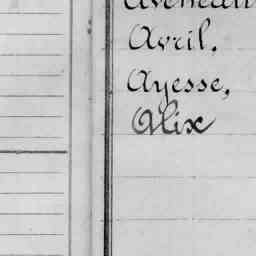 Avril.
Ayesse,
Alix